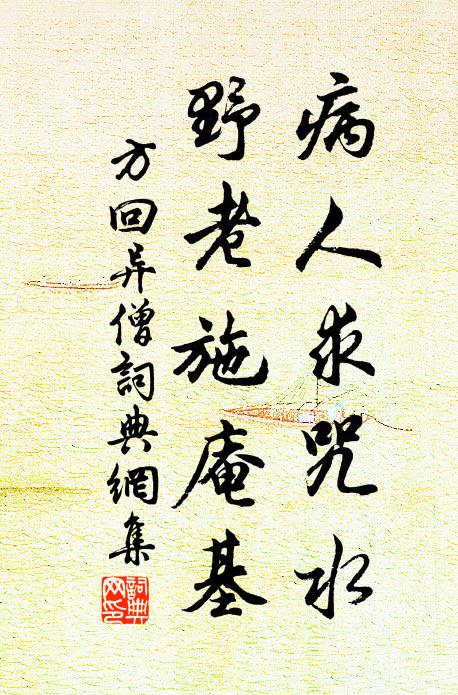 病人求咒水
野老施庵基
方回异僧詞典網集
詞典網印